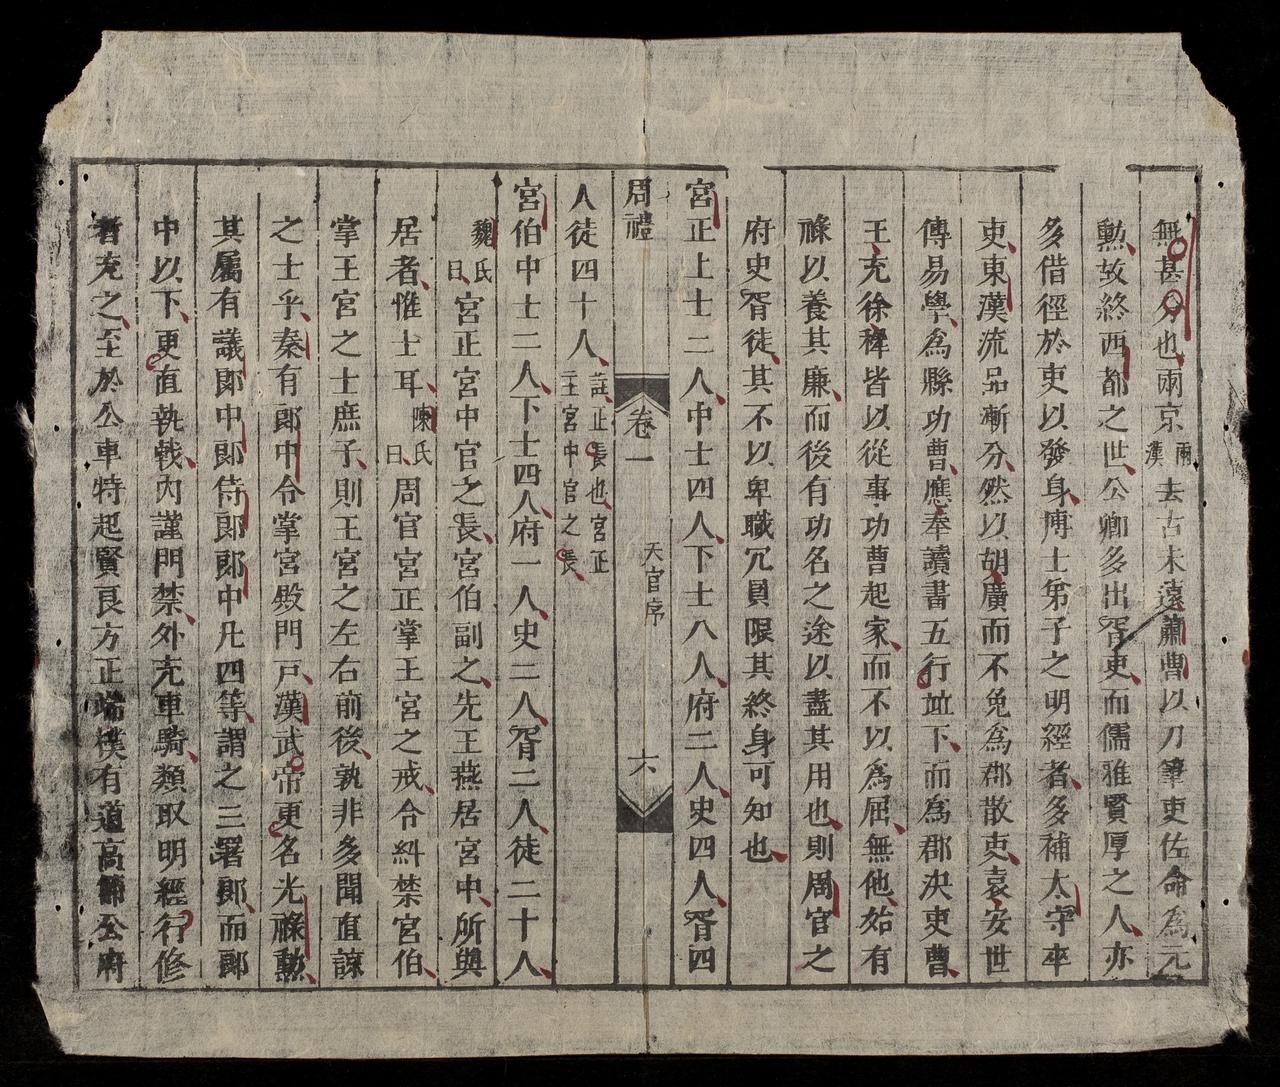 無甚分也兩京兩漢去古未遠蕭曹以刀筆吏佐命為元
勲故終西都之世公卿多出胥吏而儒雅賢厚之人亦
多借徑於吏以發身愽士弟子之明經者多補太守卒
吏東漢流品漸分然以胡廣而不免為郡散吏袁安世
傳易學為縣功曹應奉讀書五行並下而為郡決吏曹
王充徐穉皆以從事功曹起家而不以為屈無他始有
祿以養其廉而後有功名之途以盡其用也則周官之
府史胥徒其不以卑職冗員限其終身可知也
宮正上士二人中士四人下士八人府二人史四人胥四
周禮 卷一 天官序 六
人徒四十人註正長也宮正
主宮中官之長
宮伯中士二人下士四人府一人史二人胥二人徒二十人
魏氏曰宮正宮中官之長宮伯副之先王燕居宮中所與
居者惟士耳陳氏曰周官宮正掌王宮之戒令糾禁宮伯
掌王宮之士庶子則王宮之左右前後孰非多聞直諒
之士乎秦有郎中令掌宮殿門戸漢武帝更名光祿勲
其屬有議郎中郎侍郎郎中凡四等謂之三署郎而郎
中以下更直執戟內謹門禁外充車騎類取明經行修
者充之至於公車特起賢良方正端樸有道高節公府